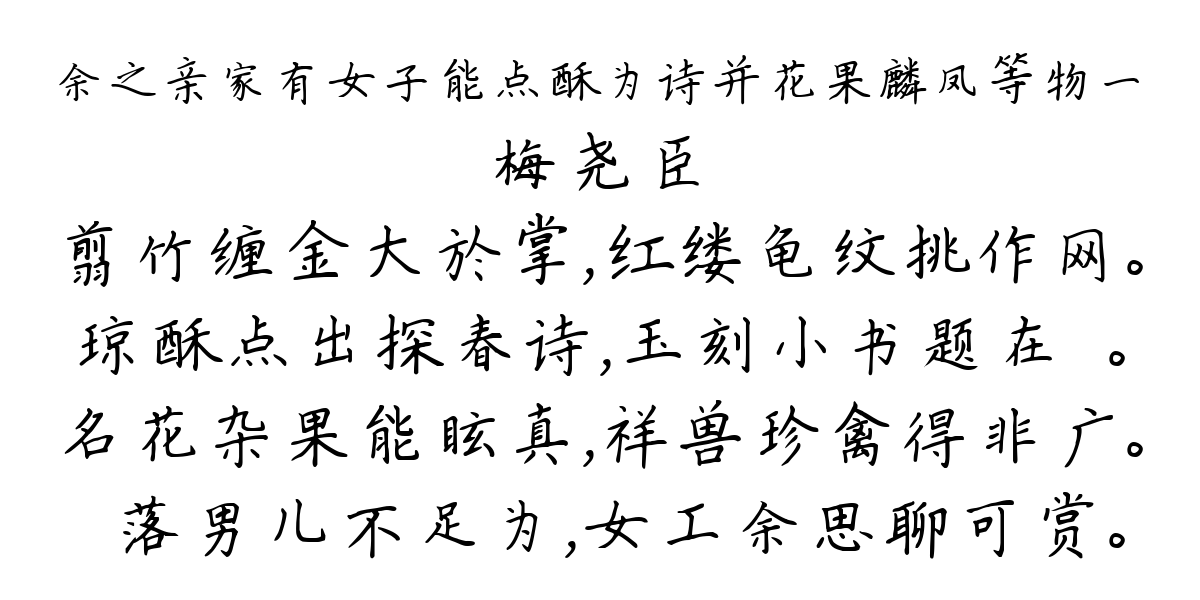 余之亲家有女子能点酥为诗并花果麟凤等物一
梅尧臣
翦竹缠金大於掌,红缕龟纹挑作网。
琼酥点出探春诗,玉刻小书题在 。
名花杂果能眩真,祥兽珍禽得非广。
落男儿不足为,女工余思聊可赏。